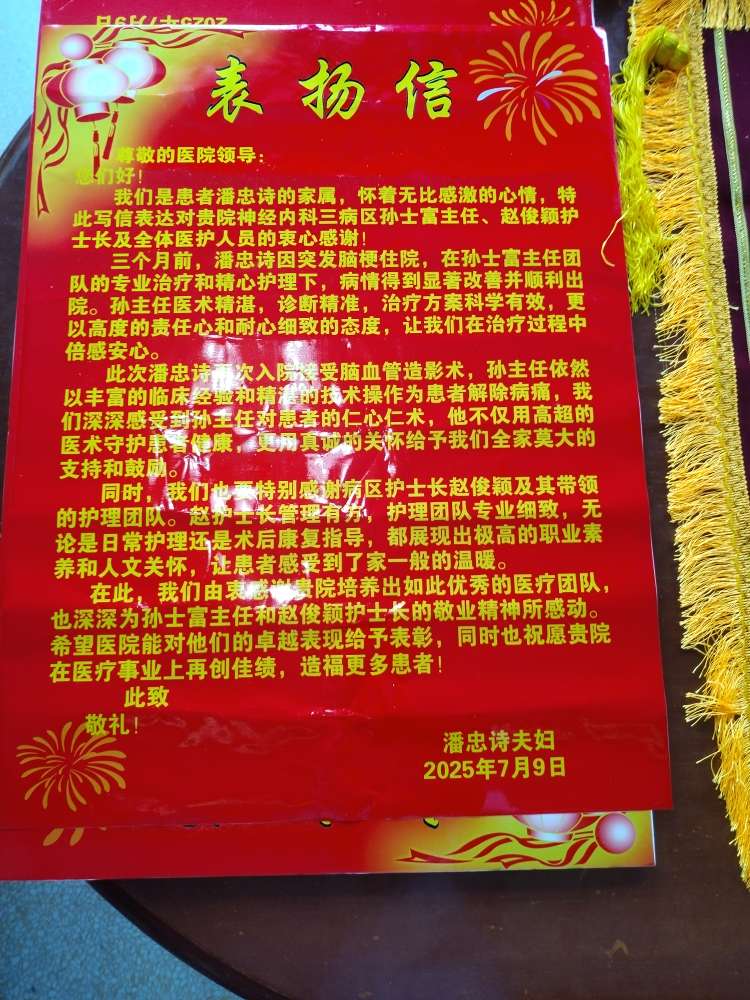 2025年7月9日
表扬信
尊敬的医院领导：
您们好！
我们是患者潘忠诗的家属，怀着无比感激的心情，特
此写信表达对贵院神经内科三病区孙士富主任、赵俊颖护
士长及全体医护人员的衷心感谢！
三个月前，潘忠诗因突发脑梗住院，在孙士富主任团
队的专业治疗和精心护理下，病情得到显著改善并顺利出
院。孙主任医术精湛，诊断精准，治疗方案科学有效，更
以高度的责任心和耐心细致的态度，让我们在治疗过程中
倍感安心。
此次潘忠诗再次入院接受脑血管造影术，孙主任依然
以丰富的临床经验和精湛的技术操作为患者解除病痛，我
们深深感受到孙主任对患者的仁心仁术，他不仅用高超的
医术守护患者健康，更用真诚的关怀给予我们全家莫大的
支持和鼓励。
同时，我们也要特别感谢病区护士长赵俊颖及其带领
的护理团队。赵护士长管理有方，护理团队专业细致，无
论是日常护理还是术后康复指导，都展现出极高的职业素
养和人文关怀，让患者感受到了家一般的温暖。
在此，我们由衷感谢贵院培养出如此优秀的医疗团队，
也深深为孙士富主任和赵俊颖护士长的敬业精神所感动。
希望医院能对他们的卓越表现给予表彰，同时也祝愿贵院
在医疗事业上再创佳绩，造福更多患者！
此致
敬礼！
潘忠诗夫妇
2025年7月9日